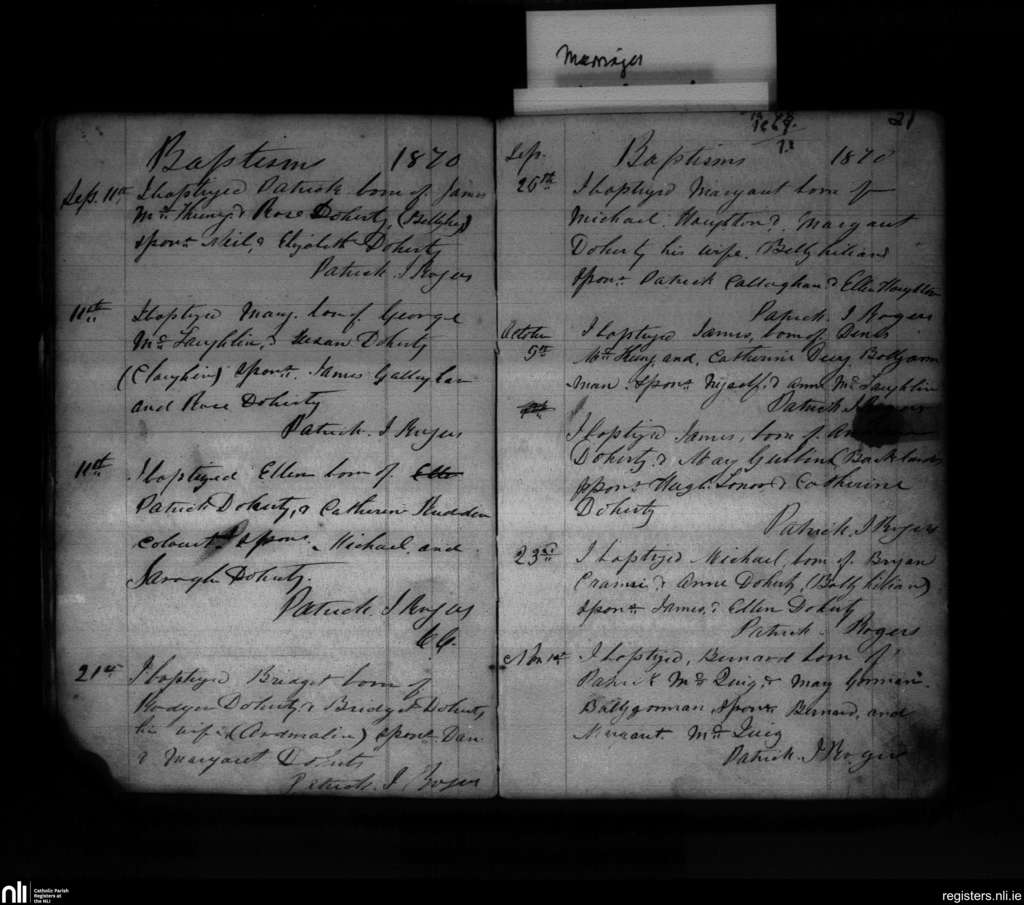 Marriages
Baptisms 1870
Sept. 11th I baptized Patrick born of James
& Rose Doherty
spons. Neil & Elizabeth Doherty
Patrick J Rogers
11th I baptized Mary born of George
Mc Laughlin & Susan Doherty
spons. James Gallaghar
and Rose Doherty
Patrick J Rogers
11th I baptized Ellen born of
Patrick Doherty, & Catherine
spons. Michael and
Saragh Doherty.
Patrick J Rogers
CC.
21st I baptized Bridget born of
Rodger Doherty & Bridget Doherty
his wife (Ardmalin) spons. Dan
& Margaret Doherty
Patrick J Rogers
21
Sep. Baptisms 1870
26th I baptized Margaut born of
Michael Houghton & Margaut
Doherty his wife. Ballyhilian
spons. Patrick Callaghan & Ellen Houghton
Patrick J Rogers
October I baptized James, born of Denis
5th and Catherine
man spons. Myself & Ann Mc Laughlin
Patrick J Rogers
I baptized James, born of
Doherty & Mary
spons. Hugh & Catherine
Doherty
Patrick J Rogers
23rd I baptized Michael, born of Bryan
& Anne Doherty (Ballyhilian)
spons. James & Ellen Doherty
Patrick Rogers
Nov 1st I baptized, Bernard born of
Patrick Mc Quig & Mary Gorman
Ballygorman spons. Bernard, and
Margaut Mc Quig
Patrick J Rogers
nli Catholic Parish
Registers at
the NLI
registers.nli.ie